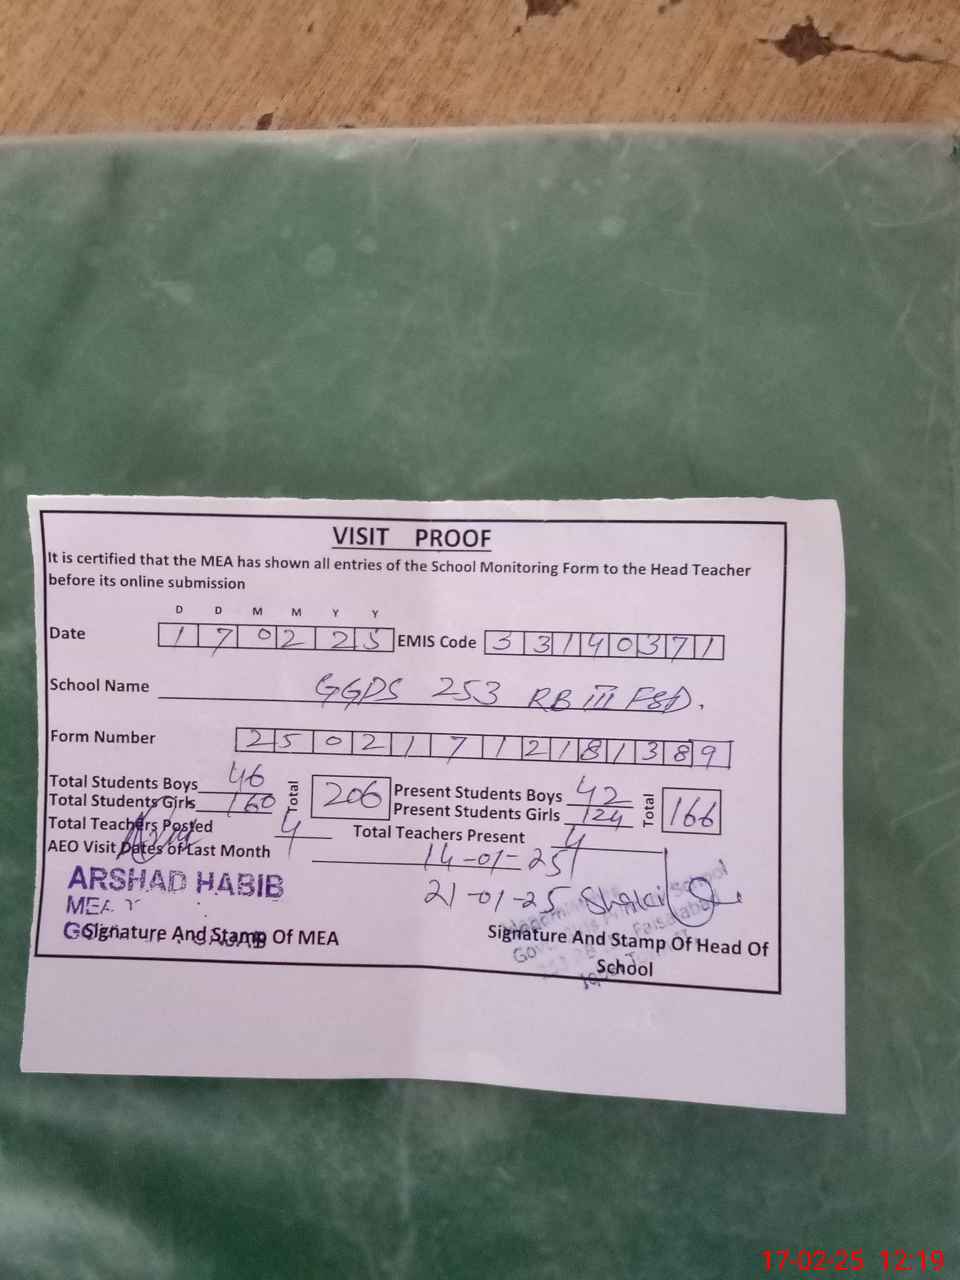 VISIT PROOF
It is certified that the MEA has shown all entries of the School Monitoring Form to the Head Teacher
before its online submission
D D M M Y Y
Date 1 7 0 2 2 5 EMIS Code 3 3 1 4 0 3 7 1
School Name GGPS 253 RB III FSD.
Form Number 2 5 0 2 1 7 1 2 1 8 1 3 8 9
Total Students Boys 46 Total 206 Present Students Boys 42 Total 166
Total Students Girls 160 Present Students Girls 124
Total Teachers Posted 4 Total Teachers Present 4
AEO Visit Dates of Last Month 14-01-25
21-01-25
ARSHAD HABIB
MEA
Signature And Stamp Of MEA
Signature And Stamp Of Head Of
School
17-02-25 12:19